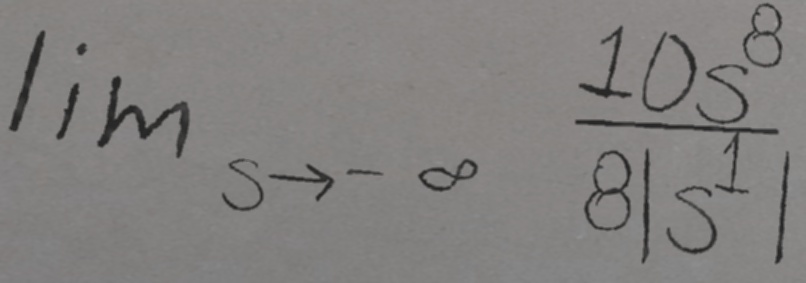 lim_{s→-∞} \frac{10s^8}{8|s^1|}